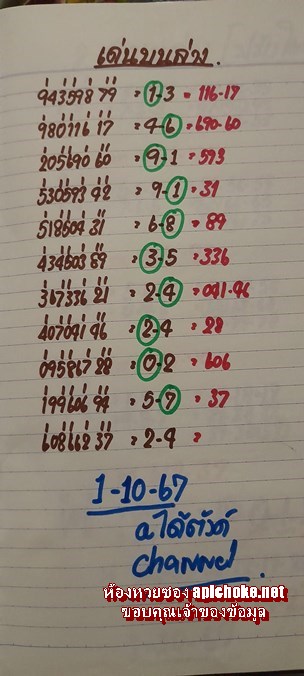 เด่นบนล่าง.
943598 79 = 1-3 = 116-17
980116 17 = 4-6 = 690-60
205690 60 = 9-1 = 593
530593 42 = 9-1 = 31
518504 31 = 6-8 = 89
434503 89 = 3-5 = 336
367336 21 = 2-4 = 041-46
407041 46 = 2-4 = 28
095867 28 = 0-2 = 606
199606 94 = 5-7 = 37
608662 37 = 2-4 =
1-10-67
a ได้ตังค์
channel.
ห้องหวยซอง aplchoke.net
ขอบคุณเจ้าของข้อมูล